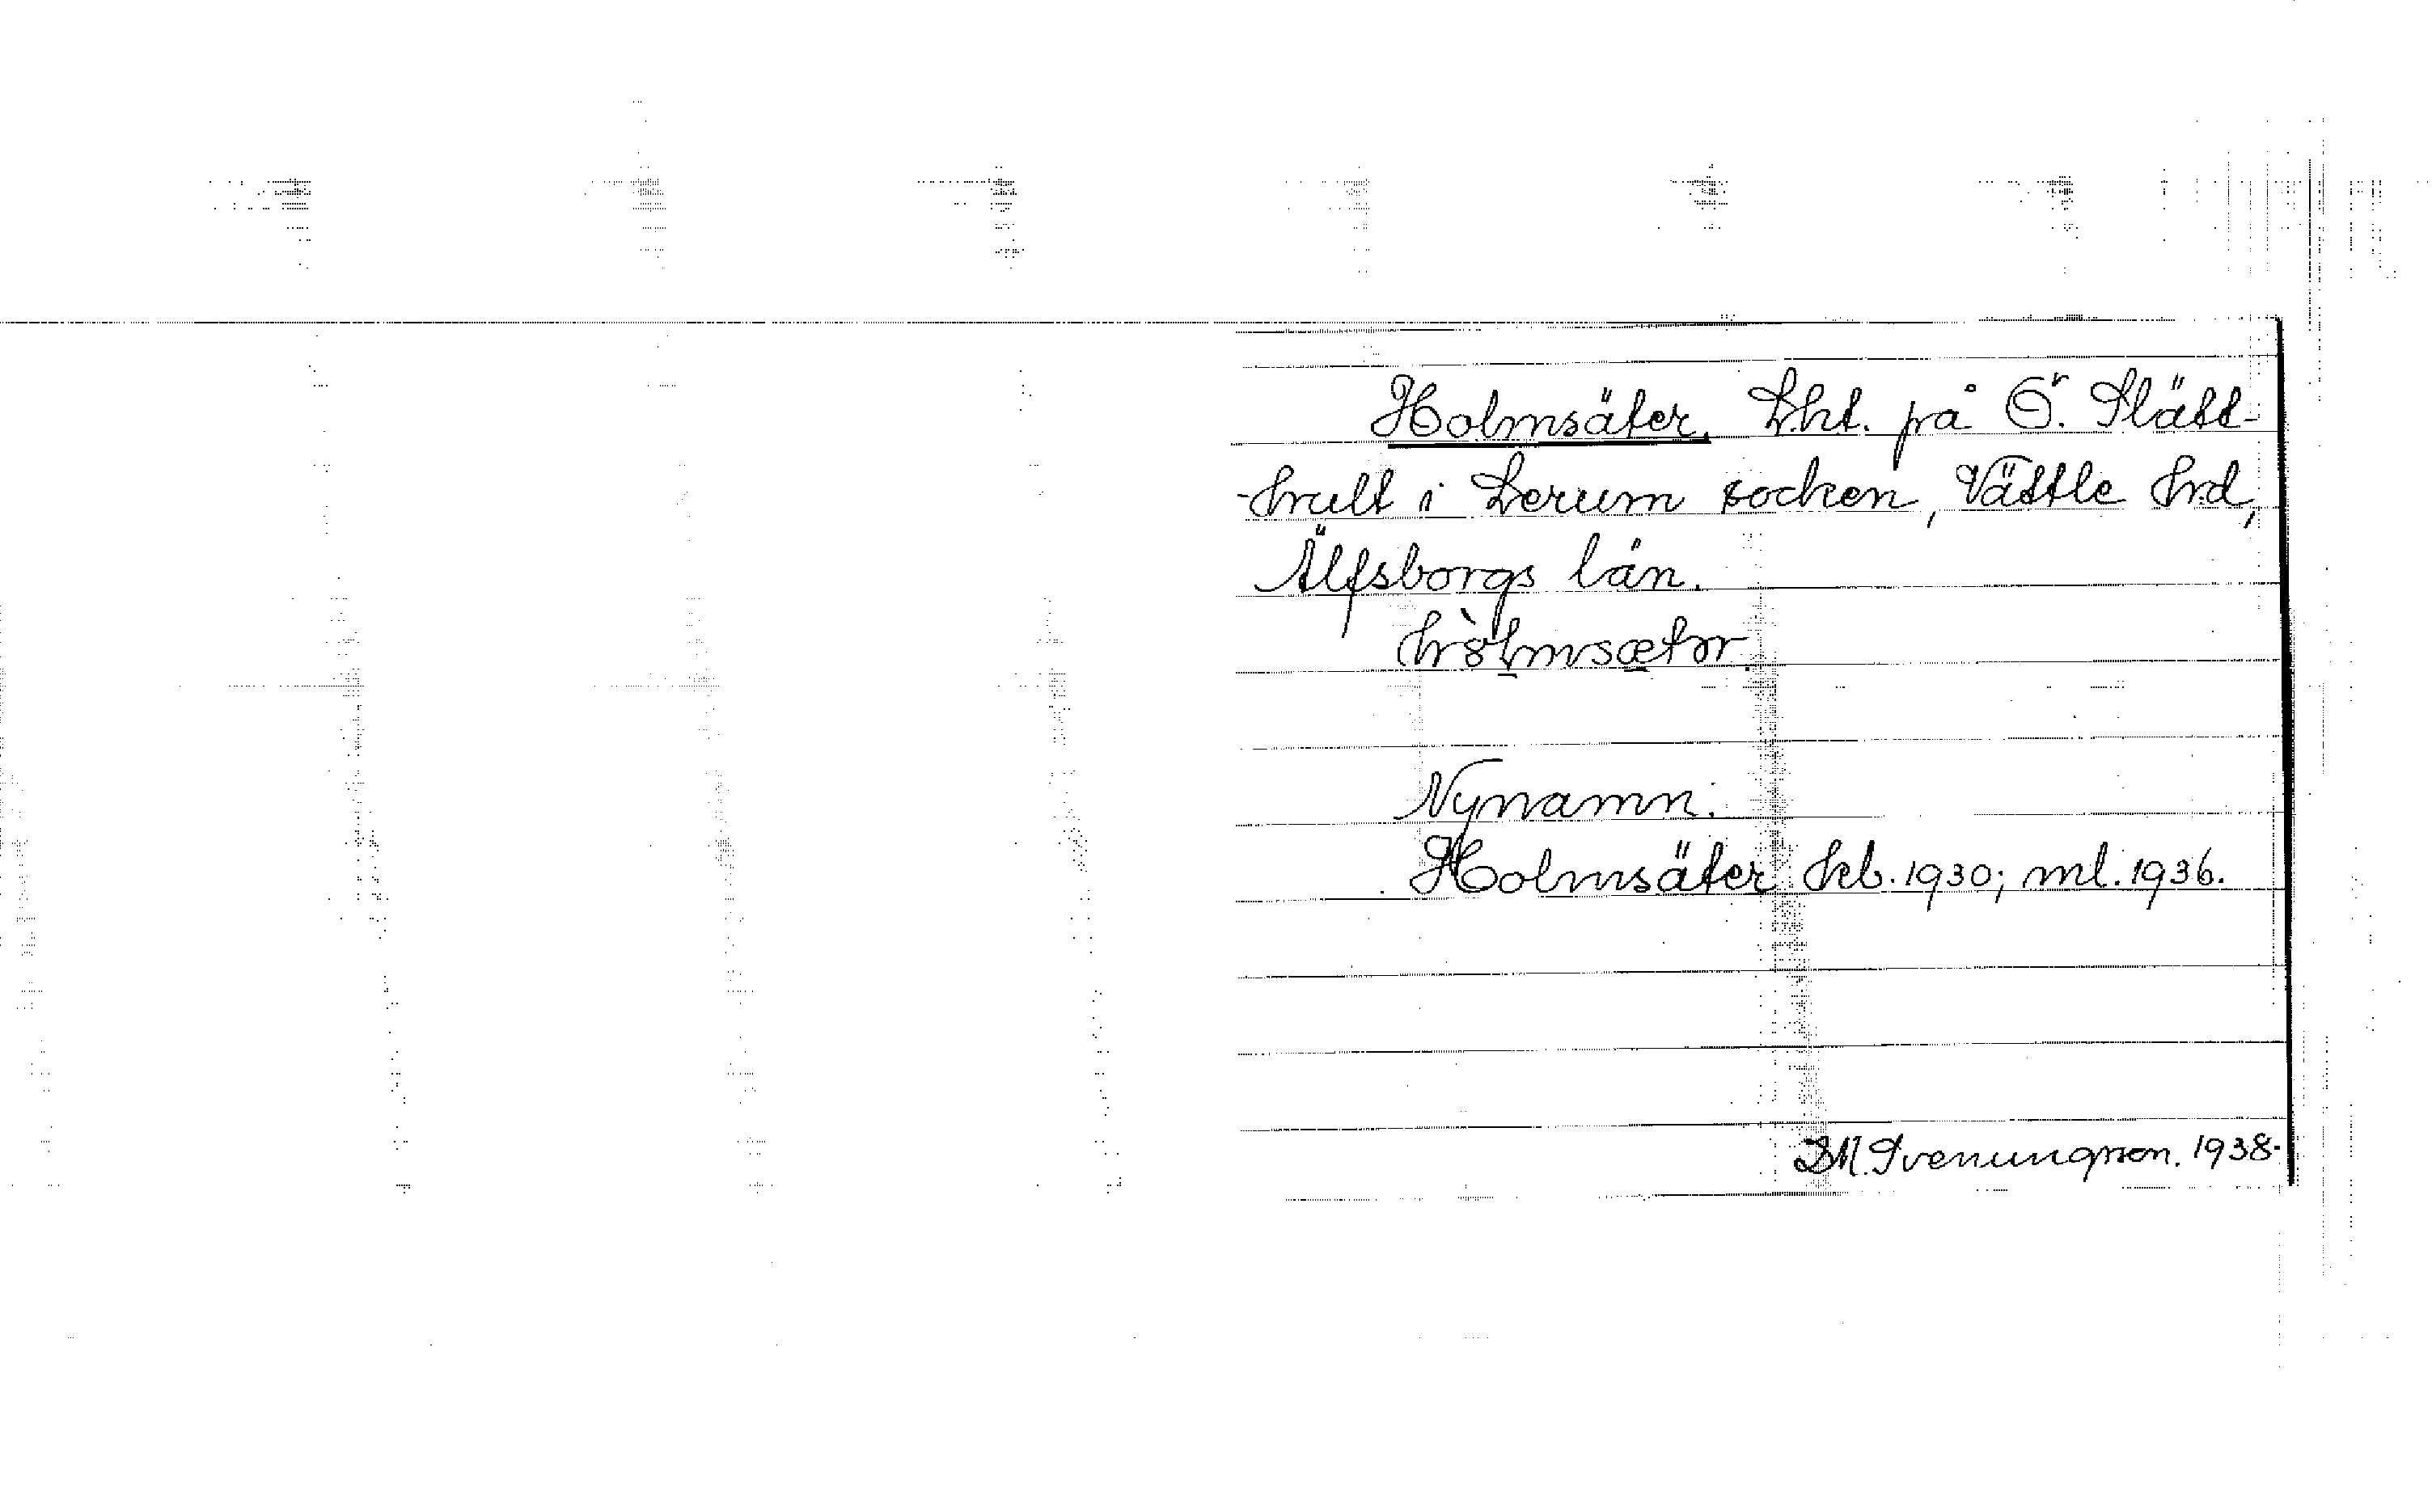 Holmsäter. Lht. på Ö. Slätt-
-hult i Lerum socken, Vättle hd,
Älfsborgs län.
hòlmsætər.
Nynamn.
Holmsäter kb. 1930; ml. 1936.
M. Svenungsson. 1938.